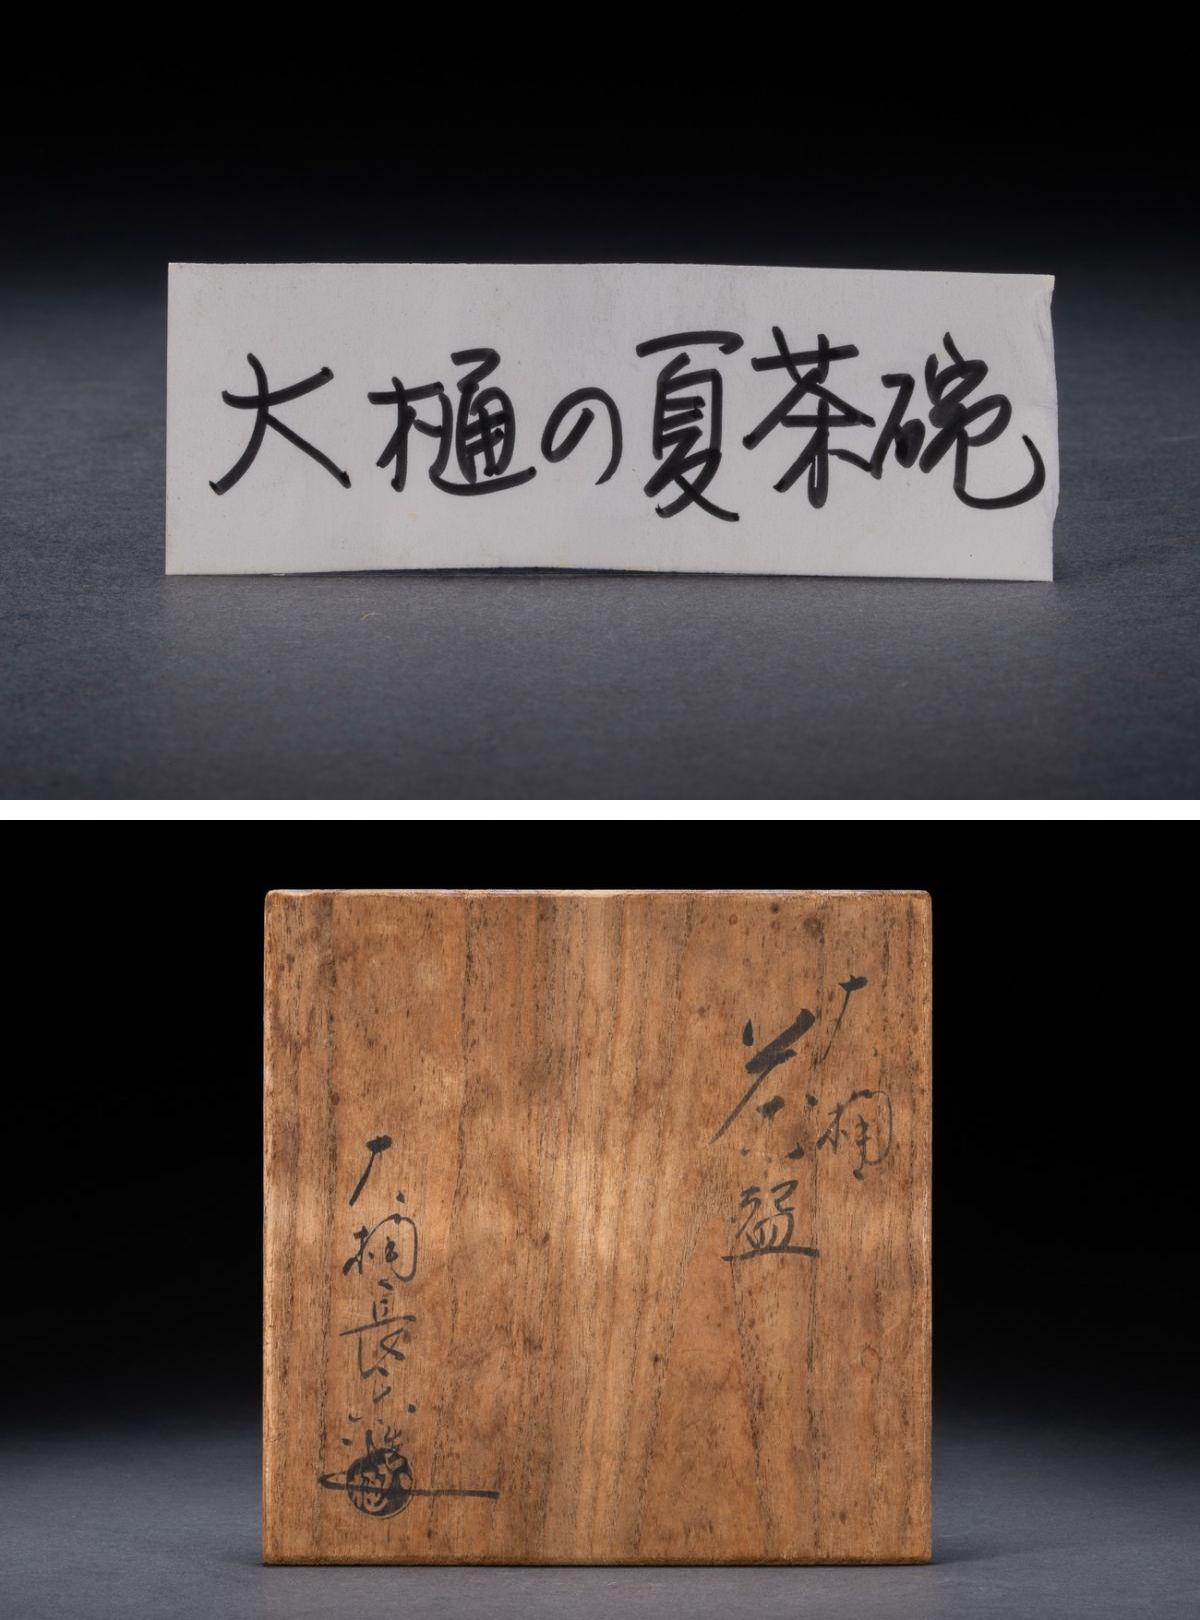 大樋の夏茶碗
大樋
茶盌
大樋長六造